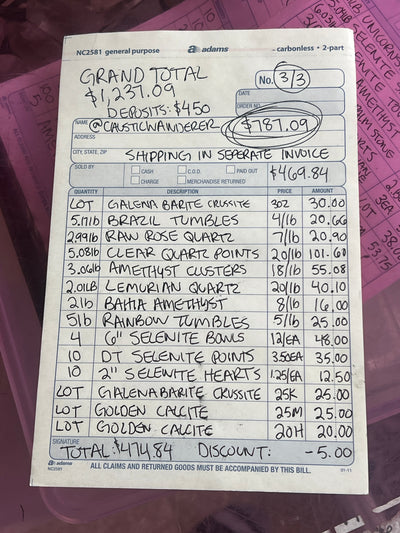 NC2581 general purpose adams carbonless • 2-part
GRAND TOTAL
$1,237.09
No. 3/3
DEPOSITS: $450
DATE
ORDER NO.
NAME @CAUSTICWANDERER
$787.09
ADDRESS
CITY, STATE, ZIP SHIPPING IN SEPERATE INVOICE
SOLD BY CASH C.O.D. PAID OUT $469.84
CHARGE MERCHANDISE RETURNED
QUANTITY DESCRIPTION PRICE AMOUNT
LOT GALENA BARITE CRUSSITE 30Z 30.00
5.17lb BRAZIL TUMBLES 4/lb 20.66
2.99lb RAW ROSE QUARTZ 7/lb 20.90
5.08lb CLEAR QUARTZ POINTS 20/lb 101.60
3.06lb AMETHYST CLUSTERS 18/lb 55.08
2.01LB LEMURIAN QUARTZ 20/lb 40.10
2lb BAHIA AMETHYST 8/lb 16.00
5lb RAINBOW TUMBLES 5/lb 25.00
4 6" SELENITE BOWLS 12/EA 48.00
10 DT SELENITE POINTS 3.50EA 35.00
10 2" SELENITE HEARTS 1.25/EA 12.50
LOT GALENA BARITE CRUSSITE 25K 25.00
LOT GOLDEN CALCITE 25M 25.00
LOT GOLDEN CALCITE 20H 20.00
SIGNATURE
TOTAL: $474.84 DISCOUNT: -5.00
adams
NC2581
ALL CLAIMS AND RETURNED GOODS MUST BE ACCOMPANIED BY THIS BILL.
01-11